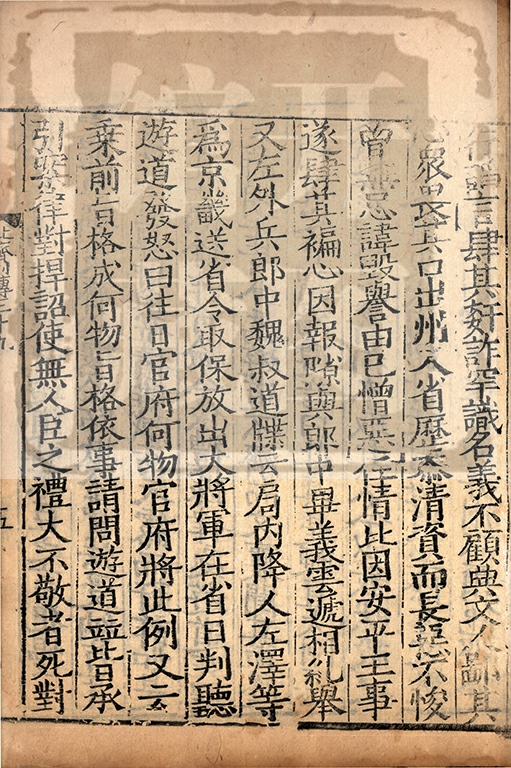 行諂言肆其奸詐罕識名義不顧典文人鄙其
心衆畏其口出州入省歷忝清資而長惡不悛
曾無忌諱毀譽由已憎惡任情比因安平王事
遂肆其褊心因報隙與郎中畢義雲遞相糺舉
又左外兵郎中魏叔道牒云局内降人左澤等
爲京畿送省令取保放出大將軍在省日判聽
遊道發怒曰往日官府何物官府將此例又云
乗前旨格成何物旨格依事請問遊道並皆承
引案律對捍詔使無人臣之禮大不敬者死對
五